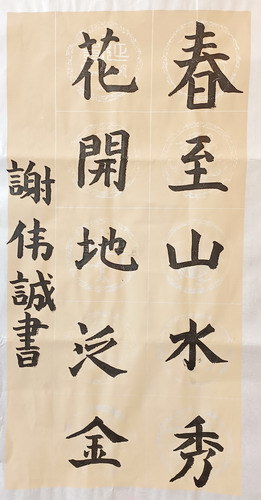 春至山水秀
花開地泛金
謝伟誠書